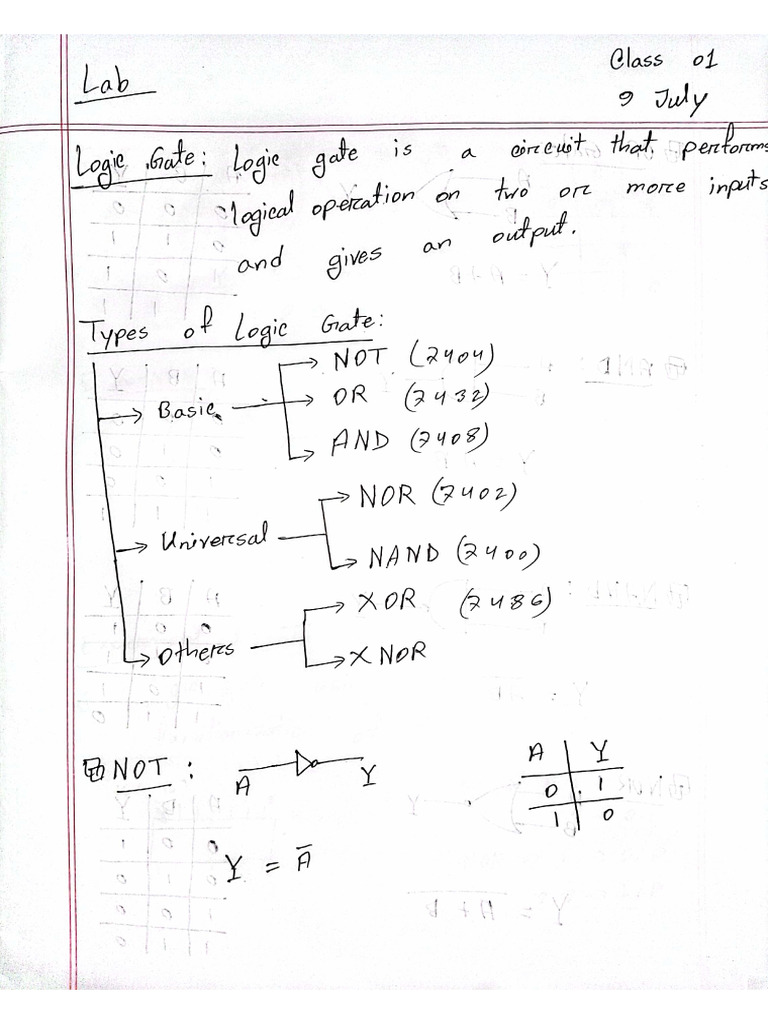 Lab
Class 01
9 July
Logic Gate: Logic gate is a circuit that performs
logical operation on two or more inputs
and gives an output.
Types of Logic Gate:
Basic
NOT (7404)
OR (7432)
AND (7408)
Universal
NOR (7402)
NAND (7400)
Others
XOR (7486)
XNOR
NOT:
A Y
A Y
0 1
1 0
Y = A̅